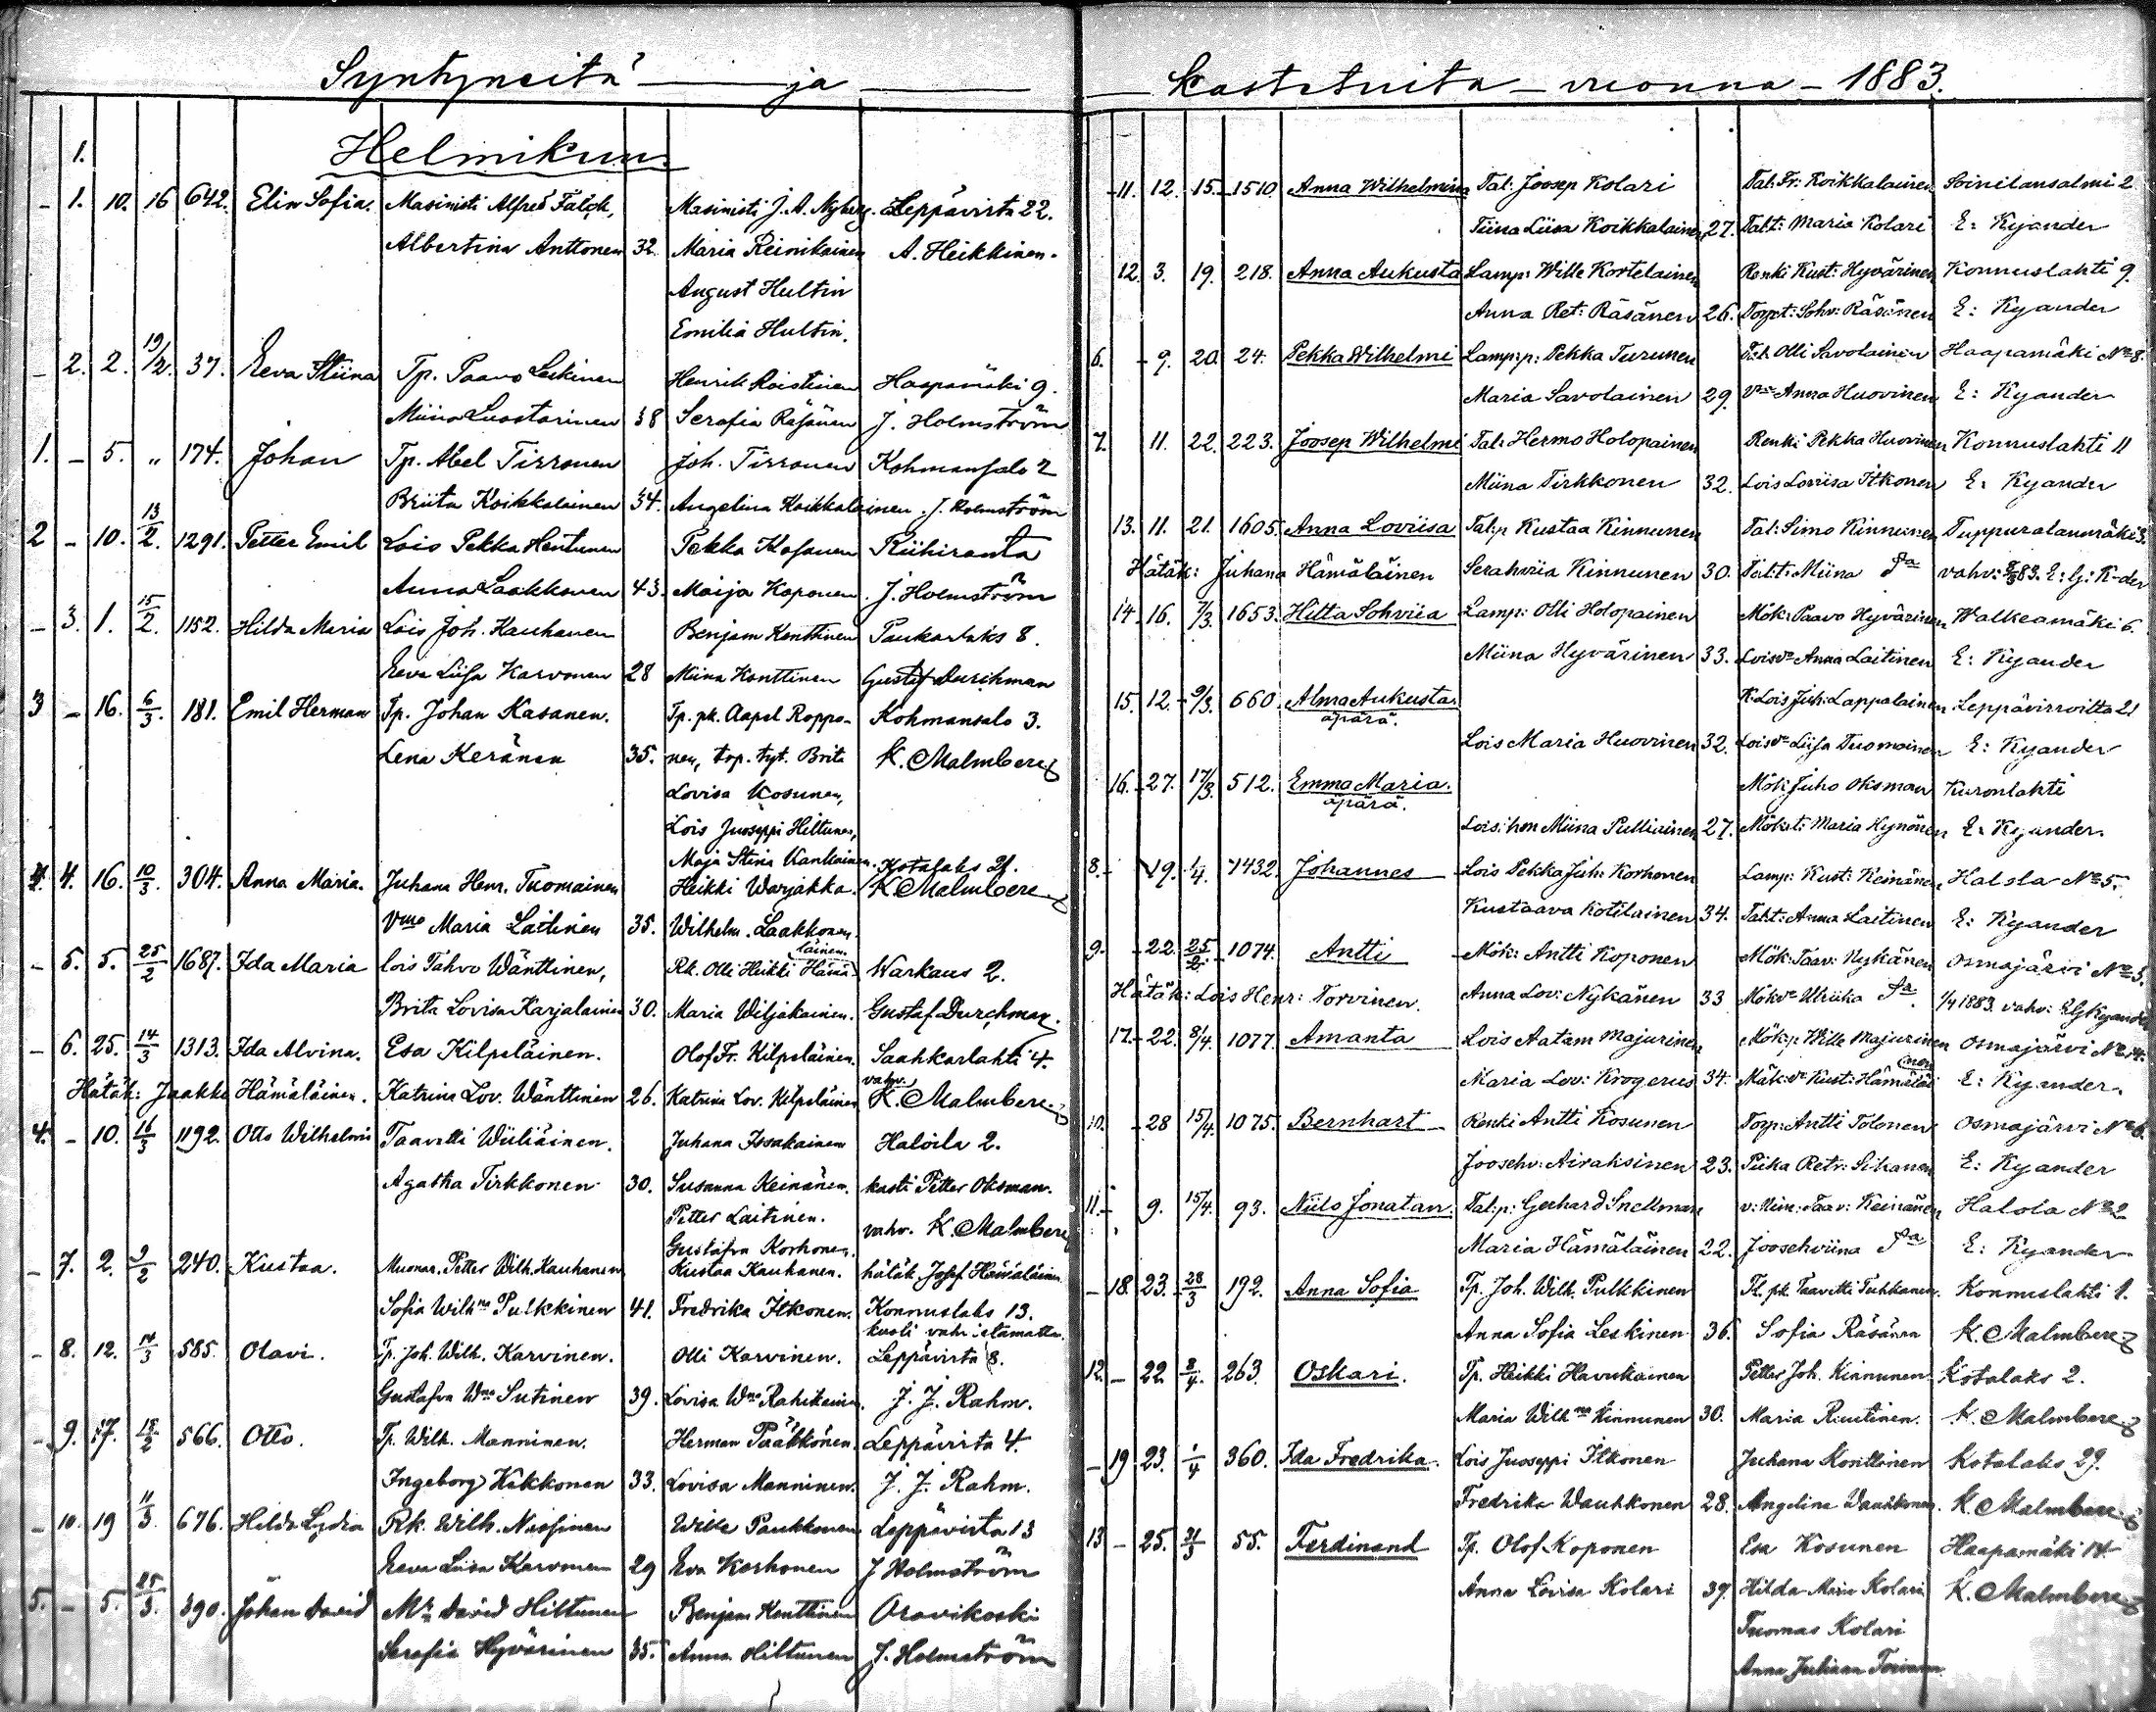 Syntyneitä ja
Helmikuu
1.
- 1. 10. 16 642. Elin Sofia. Masinisti Alfred Falck, Masinisti J. A. Nyberg. Leppävirta 22.
Albertina Anttonen 32 Maria Reinikainen A. Heikkinen.
August Hultin
Emilia Hultin.
- 2. 2. 19/2. 37. Eeva Stiina Tp. Paavo Leskinen Henrik Roistinen Haapamäki 9.
Miina Luostarinen 38 Serafia Räsänen J. Holmström
1. - 5. " 174. Johan Tp. Abel Tirronen Joh. Tirronen Kohmansalo 2
Briita Koikkalainen 34. Angelina Koikkalainen. J. Holmström
2 - 10. 13/2. 1291. Petter Emil Lois Pekka Hentunen Pekka Kosonen Riihiranta
Anna Laakkonen 43. Maija Koponen J. Holmström
- 3. 1. 15/2. 1152. Hilda Maria Lois Joh. Kauhanen Benjam Konttinen Paukarlaks 8.
Eeva Liisa Karvonen 28 Miina Konttinen Gustaf Durchman
3 - 16. 6/3. 181. Emil Herman Tp. Johan Kasanen. Tp. pk. Aapel Roppo- Kohmansalo 3.
Lena Keränen 35. nen, trp. tyt. Brita K. Malmberg
Lovisa Kosunen,
Lois Juoseppi Hiltunen,
Maja Stina Kankainen. Kotalaks 21.
4. 16. 10/3. 304. Anna Maria. Juhana Henr. Tuomainen Heikki Warjakka. K Malmberg
Vmo Maria Laitinen 35. Wilhelm. Laakkonen.
- 5. 5. 25/2 1687. Ida Maria lois Tahvo Wänttinen, Rk. Olli Heikki Hämäläinen Warkaus 2.
Brita Lovisa Karjalainen 30. Maria Wiljakainen. Gustaf Durchman.
- 6. 25. 14/3 1313. Ida Alvina. Esa Kilpeläinen. Olof Fr. Kilpeläinen. Saahkarlahti 4.
Hätäk: Jaakko Hämäläinen. Katrina Lov. Wänttinen 26. Katrina Lov. Kilpeläinen vahv. K. Malmberg
4. - 10. 16/3 1192. Otto Wilhelmi Taavetti Wiiliäinen. Juhana Issakainen Haloila 2.
Agatha Tirkkonen 30. Susanna Keinänen. kasti Petter Oksman.
Petter Laitinen. vahv. K. Malmberg
Gustafva Korhonen.
- 7. 2. 2/2 240. Kustaa. Muonar. Petter Wilh. Kauhanen Kustaa Kauhanen. hätäk Josef Hämäläinen
Sofia Wilhna Pulkkinen 41. Fredrika Itkonen. Konnuslaks 13.
kuoli vahvistamatta.
- 8. 12. 14/3 585. Olavi. Tp. Joh. Wilh. Karvinen. Olli Karvinen. Leppävirta 8.
Gustafva Wna Sutinen 39. Lovisa Wna Rahikainen. J. J. Rahm.
- 9. 17. 18/2 566. Otto. Tp. Wilh. Manninen. Herman Pääkkönen. Leppävirta 4.
Ingeborg Kekkonen 33. Lovisa Manninen. J. J. Rahm.
- 10. 19 11/3. 676. Hilda Lydia Rk. Wilh. Nissinen Wille Paukkonen Leppävirta 13
Eeva Liisa Karvonen 29 Eva Korhonen J Holmström
5. - 5. 25/3. 390. Johan David Mr David Hiltunen Benjam Konttinen Oravikoski
Serafia Hyvärinen 35. Anna Hiltunen J. Holmström
kastetuita - vuonna - 1883.
11. 12. 15. 1510. Anna Wilhelmina Tal: Joosep Kolari Tal: Fr: Koikkalainen Soinilansalmi 2
Tiina Liisa Koikkalainen 27. Talt: Maria Kolari E: Kyander
12. 3. 19. 218. Anna Aukusta Lamp: Wille Kortelainen Renki Kust: Hyvärinen Konnuslahti 9.
Anna Ret: Räsänen 26. Torpt: Sohv: Räsänen E: Kyander
6. - 9. 20. 24. Pekka Wilhelmi Lampp: Pekka Turunen Tal. Olli Savolainen Haapamäki No 8.
Maria Savolainen 29. Vmo Anna Huovinen E: Kyander
7. 11. 22. 223. Joosep Wilhelmi Tal: Hermo Holopainen Renki Pekka Huovinen Konnuslahti 11
Miina Tirkkonen 32. Lois Loviisa Itkonen E: Kyander
13. 11. 21. 1605. Anna Loviisa Talp Kustaa Kinnunen Tal: Simo Kinnunen Tuppuralanmäki 3.
Hätäk: Juhana Hämäläinen Serahviia Kinnunen 30. Talt: Miina Sa vahv: 83. E: G: K-der
14. 16. 7/3. 1653. Hilta Sohviia Lamp: Olli Holopainen Mök: Paavo Hyvärinen Walkeamäki 6.
Miina Hyvärinen 33. Loisvo Anna Laitinen E: Kyander
15. 12. 9/3. 660. Alma Aukusta. K: Lois Juh: Lappalainen Leppävirroilta 21
äpärä.
Lois Maria Huovinen 32. Loisvo Liisa Tuomainen E: Kyander
16. 27. 17/3. 512. Emma Maria. Mök: Juho Oksman Kuronlahti
äpärä.
Lois: hon Miina Pulliainen 27. Mökt: Maria Hynönen E: Kyander.
8. - 19. 1/4. 1432. Johannes Lois Pekka Juh: Korhonen Lamp: Kust: Keinänen, Halola No 5.
Kustaava Kotilainen 34. Talt: Anna Laitinen E: Kyander
9. - 22. 25/2. 1074. Antti Mök: Antti Koponen Mök: Taav: Nykänen Osmajärvi No 3.
Hätäk: Lois Henr: Torvinen. Anna Lov: Nykänen 33 Mökvo Ulriika Sa. 1/4 1883. vahv: EG Kyander
17. - 22. 8/4. 1077. Amanta Lois Aatam Majurinen Mökp: Wille Majurinen Osmajärvi No 14.
Maria Lov: Krogerus 34. Mök:vo Kust: Hämäläinen E: Kyander.
10. - 28 15/4. 1075. Bernhart Renki Antti Kosunen Torp: Antti Tolonen Osmajärvi No 6.
Joosehv: Airaksinen 23. Piika Retr: Sikanen E: Kyander
11. - 9. 15/4. 93. Niilo Jonatan. Tal:p: Gerhard Snellman v: Nim: Taav: Keinänen Halola No 2
Maria Hämäläinen 22. Joosehviina Sa E: Kyander
- 18. 23. 28/3 192. Anna Sofia Tp. Joh. Wilh. Pulkkinen Tl. pk. Taavetti Tuhkanen. Konnuslahti 1.
Anna Sofia Leskinen 36. Sofia Räsänen K. Malmberg
12 - 22 8/4. 263. Oskari. Tp. Heikki Havukainen Petter Joh. Kinnunen Kotalaks 2.
Maria Wilhna Kinnunen 30. Maria Ruutinen. K. Malmberg
- 19 23. 1/4 360. Ida Fredrika. Lois Juoseppi Itkonen Juhana Konttinen Kotalaks 29.
Fredrika Wauhkonen 28. Angelina Wauhkonen. K. Malmberg
13 - 25. 31/3 55. Ferdinand Tp. Olof Koponen Esa Kosunen Haapamäki 14
Anna Lovisa Kolari 39. Hilda Maria Kolari K. Malmberg
Tuomas Kolari
Anna Juliana Toivanen